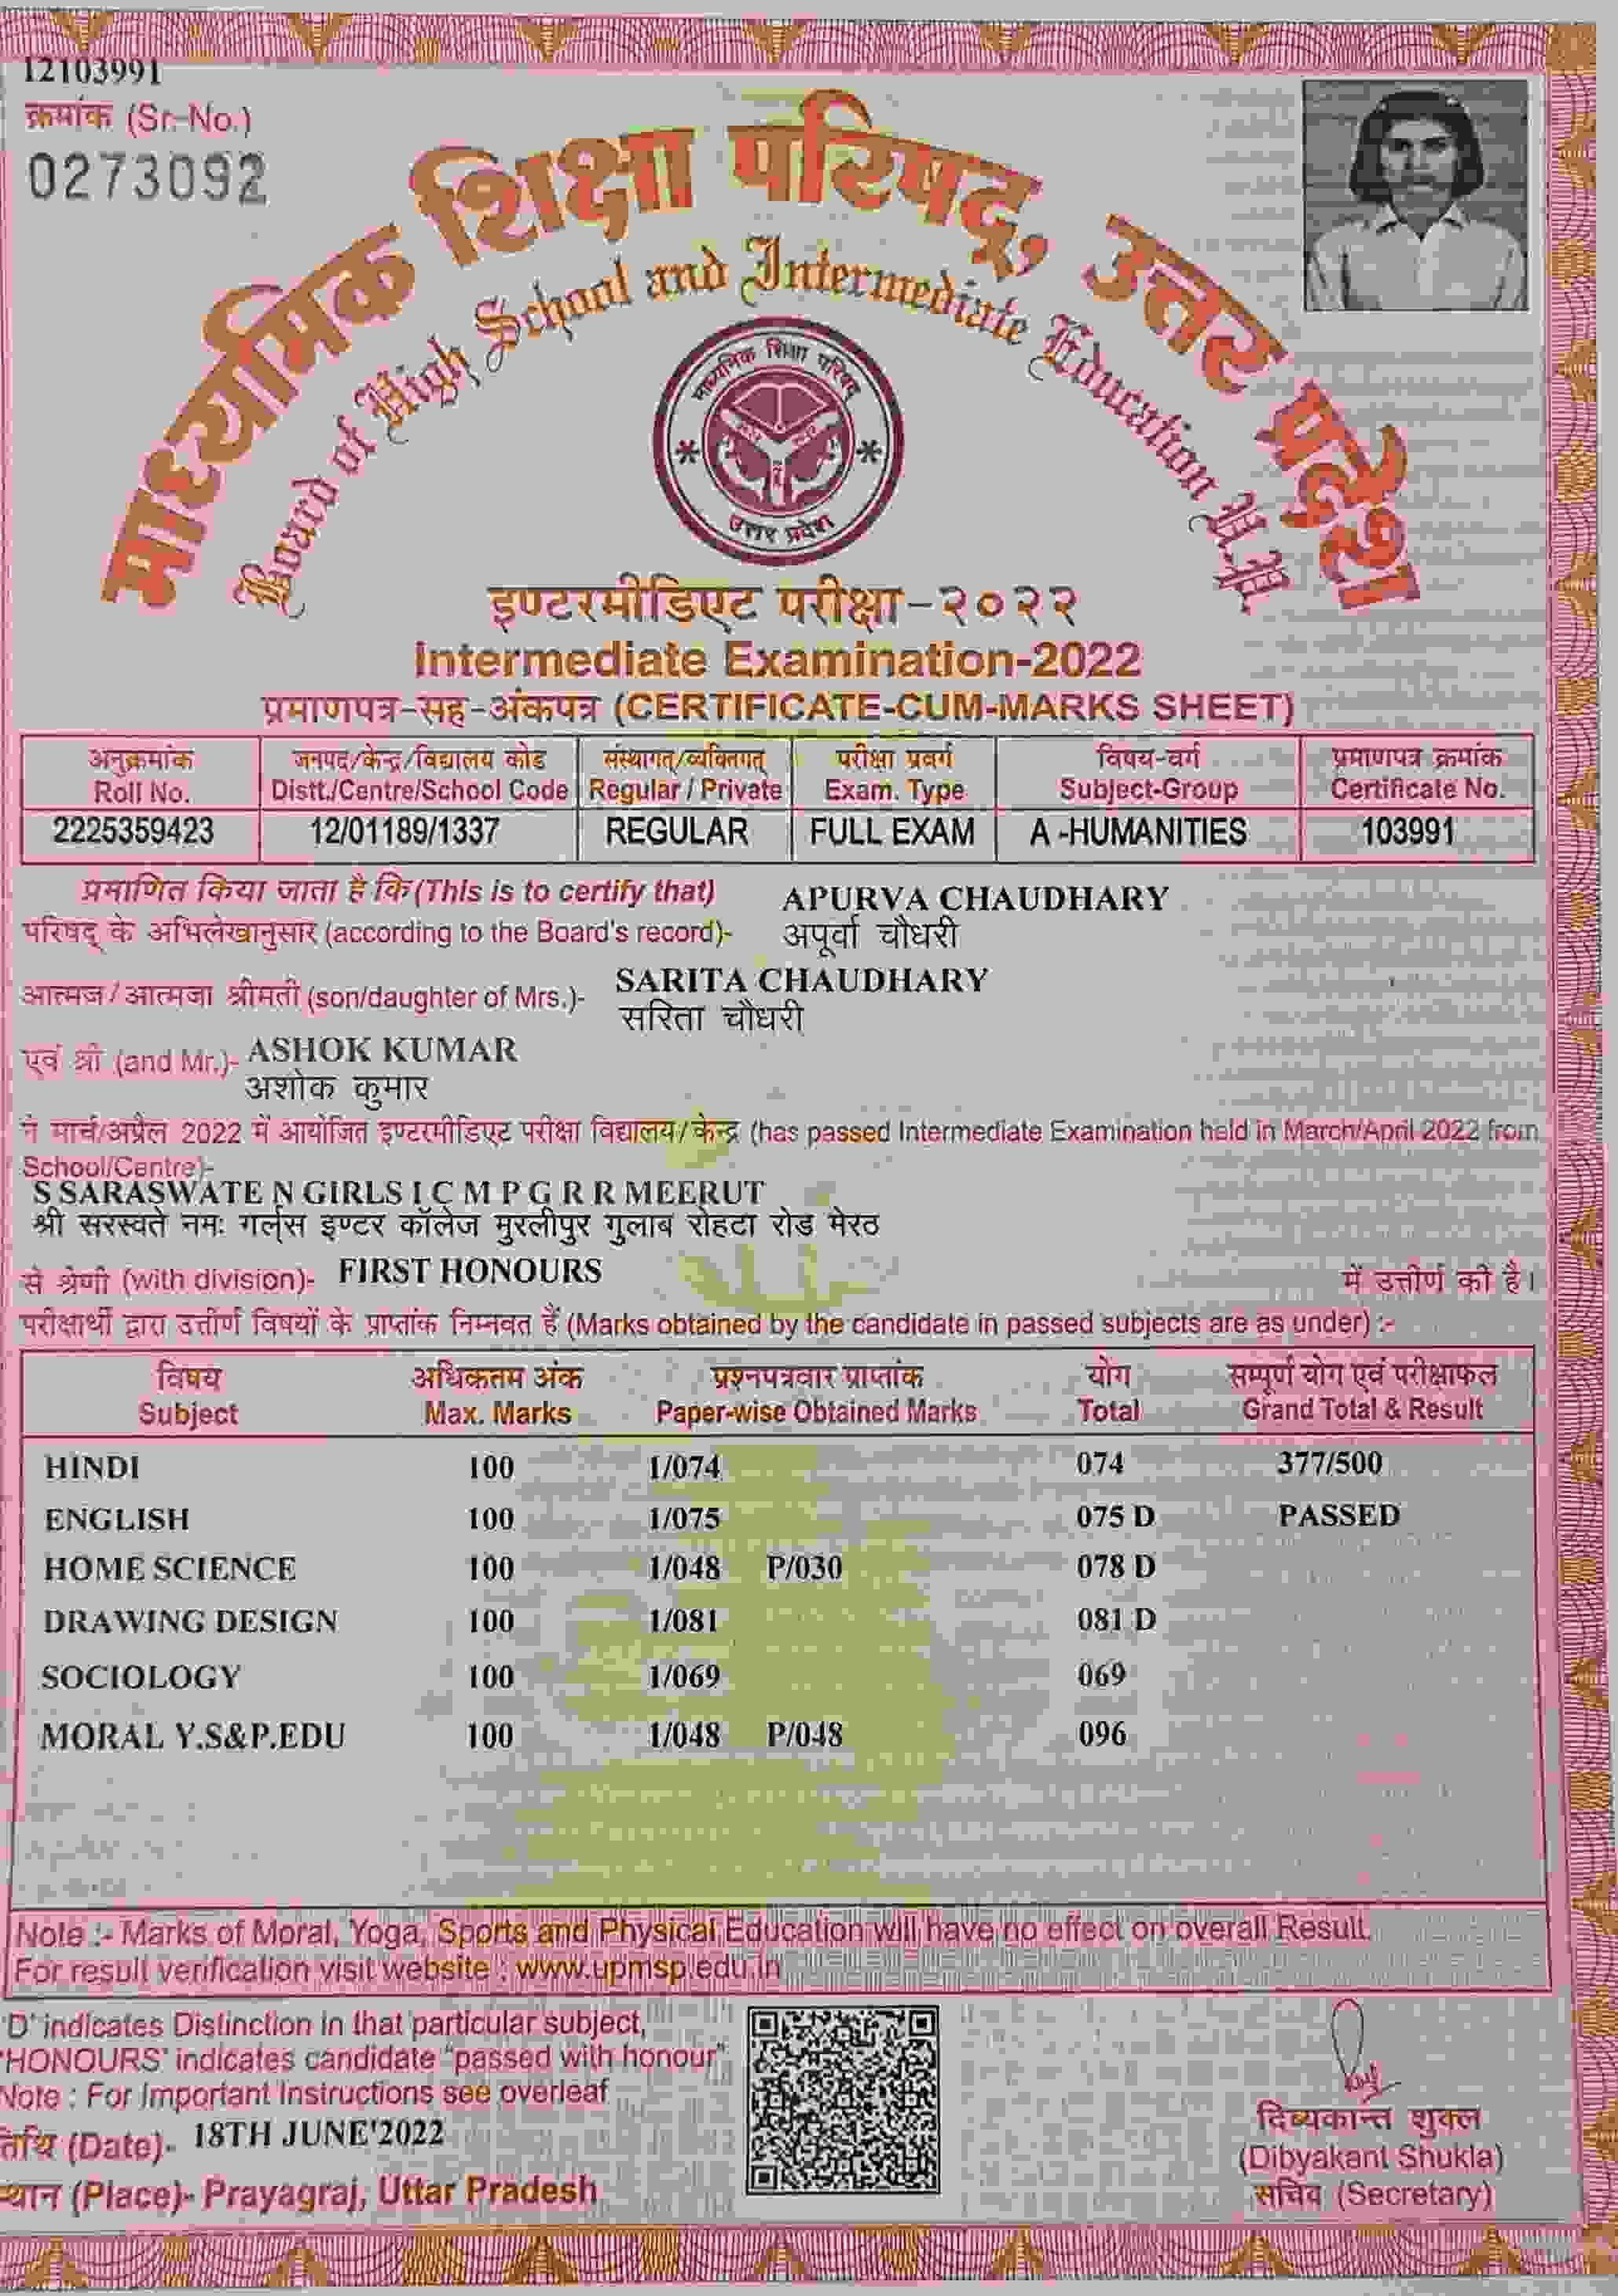 12103991
क्रमांक (Sr.-No.)
0273092
माध्यमिक शिक्षा परिषद्, उत्तर प्रदेश
Board of High School and Intermediate Education U.P.
माध्यमिक शिक्षा परिषद्
उत्तर प्रदेश
इण्टरमीडिएट परीक्षा-२०२२
Intermediate Examination-2022
प्रमाणपत्र-सह-अंकपत्र (CERTIFICATE-CUM-MARKS SHEET)
अनुक्रमांक जनपद/केन्द्र/विद्यालय कोड संस्थागत/व्यक्तिगत् परीक्षा प्रवर्ग विषय-वर्ग प्रमाणपत्र क्रमांक
Roll No. Distt./Centre/School Code Regular / Private Exam. Type Subject-Group Certificate No.
2225359423 12/01189/1337 REGULAR FULL EXAM A -HUMANITIES 103991
प्रमाणित किया जाता है कि (This is to certify that) APURVA CHAUDHARY
परिषद् के अभिलेखानुसार (according to the Board's record)- अपूर्वा चौधरी
SARITA CHAUDHARY
आत्मज / आत्मजा श्रीमती (son/daughter of Mrs.)- सरिता चौधरी
एवं श्री (and Mr.)- ASHOK KUMAR
अशोक कुमार
ने मार्च/अप्रैल 2022 में आयोजित इण्टरमीडिएट परीक्षा विद्यालय/केन्द्र (has passed Intermediate Examination held in March/April 2022 from
School/Centre)-
S SARASWATE N GIRLS I C M P G R R MEERUT
श्री सरस्वते नमः गर्ल्स इण्टर कॉलेज मुरलीपुर गुलाब रोहटा रोड मेरठ
से श्रेणी (with division)- FIRST HONOURS में उत्तीर्ण की है।
परीक्षार्थी द्वारा उत्तीर्ण विषयों के प्राप्तांक निम्नवत हैं (Marks obtained by the candidate in passed subjects are as under) :-
विषय अधिकतम अंक प्रश्नपत्रवार प्राप्तांक योग सम्पूर्ण योग एवं परीक्षाफल
Subject Max. Marks Paper-wise Obtained Marks Total Grand Total & Result
HINDI 100 1/074 074 377/500
ENGLISH 100 1/075 075 D PASSED
HOME SCIENCE 100 1/048 P/030 078 D
DRAWING DESIGN 100 1/081 081 D
SOCIOLOGY 100 1/069 069
MORAL Y.S&P.EDU 100 1/048 P/048 096
Note :- Marks of Moral, Yoga, Sports and Physical Education will have no effect on overall Result.
For result verification visit website : www.upmsp.edu.in
'D' indicates Distinction in that particular subject,
'HONOURS' indicates candidate "passed with honour"
Note : For Important Instructions see overleaf
तिथि (Date)- 18TH JUNE'2022
स्थान (Place)- Prayagraj, Uttar Pradesh
दिब्यकान्त शुक्ल
(Dibyakant Shukla)
सचिव (Secretary)